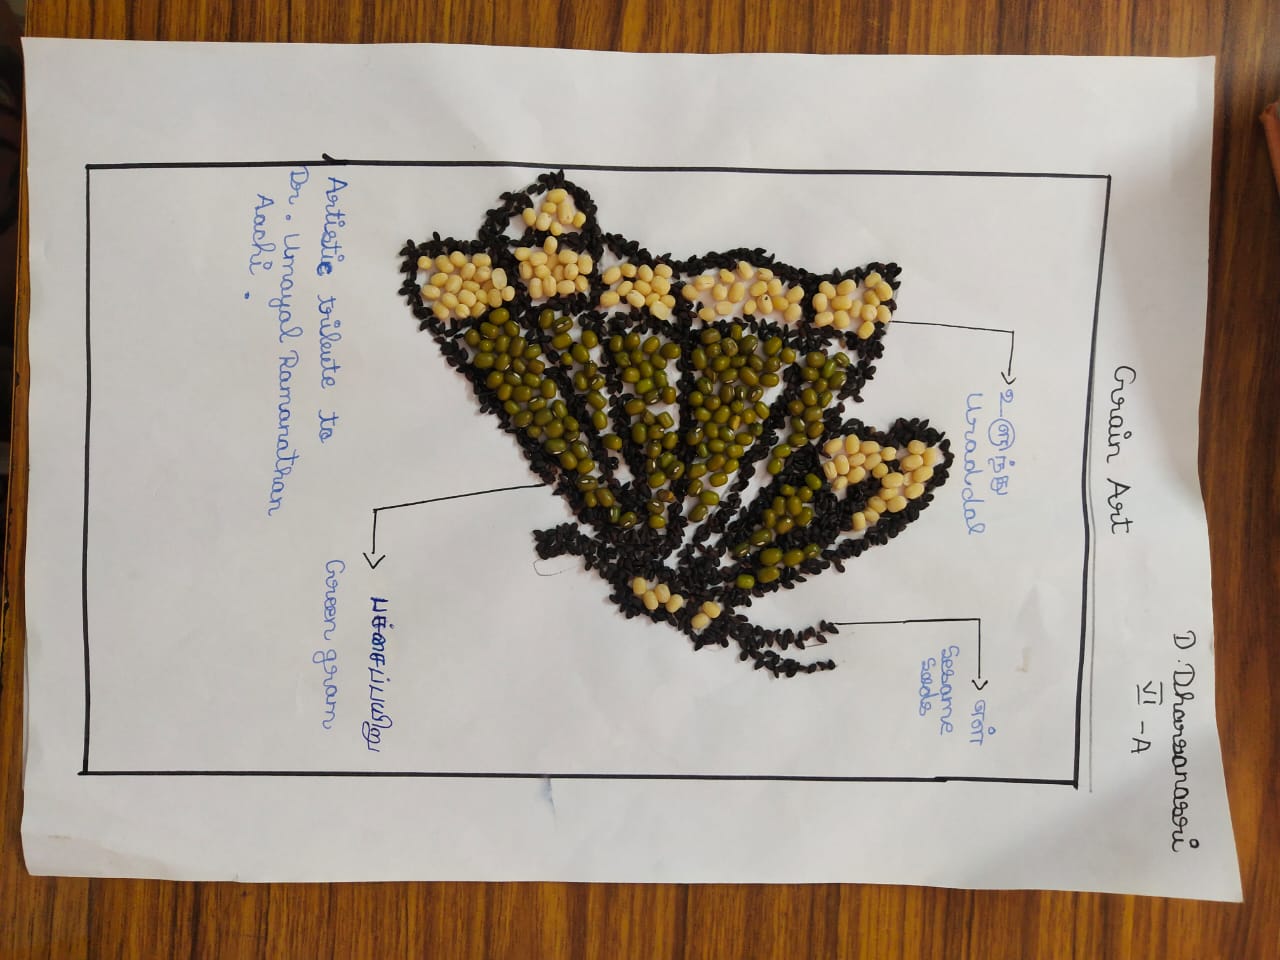 D. Dharsanasri
VI - A
Grain Art
உளுந்து
Urad dal
எள்
sesame
seeds
பச்சைப்பயிறு
Green gram
Artistic tribute to
Dr. Umayal Ramanathan
Aachi.